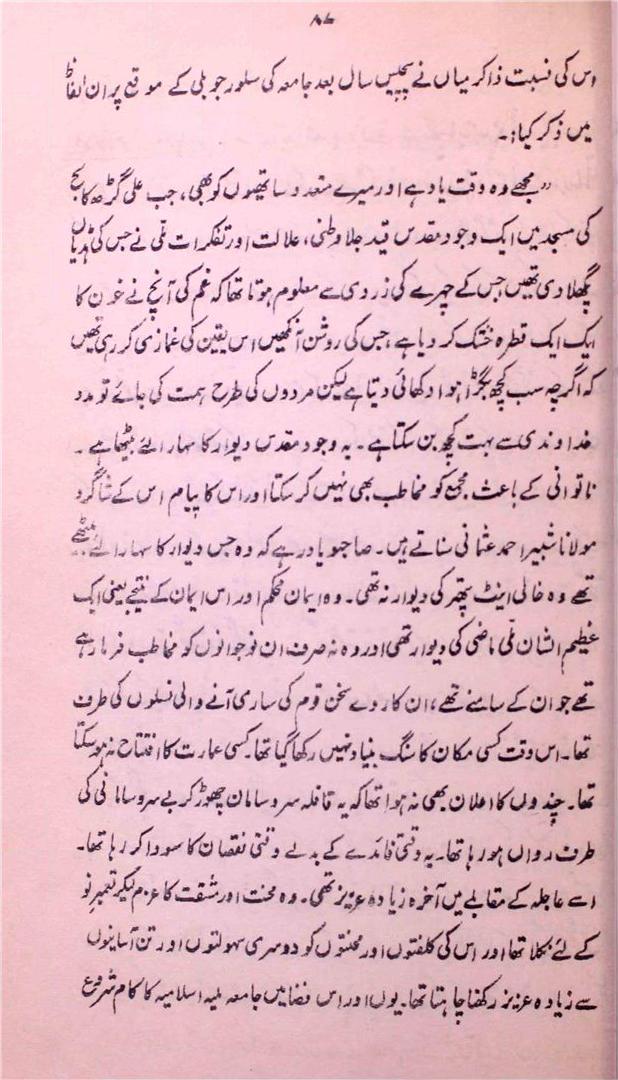 ۸۷
اس کی نسبت ذاکر میاں نے پچیس سال بعد جامعہ کی سلور جوبلی کے موقع پر ان الفاظ
میں ذکر کیا:۔
"مجھے وہ وقت یاد ہے اور میرے متعدد ساتھیوں کو بھی، جب علی گڑھ کالج
کی مسجد میں ایک وجود مقدس قید جلا وطنی، علالت اور تفکرات ملی نے جس کی ہڈیاں
پگھلا دی تھیں جس کے چہرے کی زردی سے معلوم ہوتا تھا کہ غم کی آنچ نے خون کا
ایک ایک قطرہ خشک کر دیا ہے، جس کی روشن آنکھیں اس یقین کی غمازی کر رہی تھیں
کہ اگرچہ سب کچھ بگڑا ہوا دکھائی دیتا ہے لیکن مردوں کی طرح ہمت کی جائے تو مدد
خداوندی سے بہت کچھ بن سکتا ہے۔ یہ وجود مقدس دیوار کا سہارا لئے بیٹھا ہے۔
ناتوانی کے باعث مجمع کو مخاطب بھی نہیں کر سکتا اور اس کا پیام اس کے شاگرد
مولانا شبیر احمد عثمانی سناتے ہیں۔ صاحبو یاد رہے کہ وہ جس دیوار کا سہارا لئے بیٹھے
تھے وہ خالی اینٹ پتھر کی دیوار نہ تھی۔ وہ ایمان محکم اور اس ایمان کے نتیجے یعنی ایک
عظیم الشان ملی ماضی کی دیوار تھی اور وہ نہ صرف ان نوجوانوں کو مخاطب فرما رہے
تھے جو ان کے سامنے تھے، ان کا روے سخن قوم کی ساری آنے والی نسلوں کی طرف
تھا۔ اس وقت کسی مکان کا سنگ بنیاد نہیں رکھا گیا تھا۔ کسی عمارت کا افتتاح نہ ہو سکتا
تھا۔ چندوں کا اعلان بھی نہ ہوا تھا کہ یہ قافلہ سروسامان چھوڑ کر بے سروسامانی کی
طرف رواں ہو رہا تھا۔ یہ وقتی فائدے کے بدلے وقتی نقصان کا سودا کر رہا تھا۔
اسے عاجلہ کے مقابلے میں آخرہ زیادہ عزیز تھی۔ وہ محنت اور مشقت کا عزم لیکر تعمیر نو
کے لئے نکلا تھا اور اس کی کلفتوں اور محنتوں کو دوسری سہولتوں اور تن آسانیوں
سے زیادہ عزیز رکھنا چاہتا تھا۔ یوں اور اس فضا میں جامعہ ملیہ اسلامیہ کا کام شروع